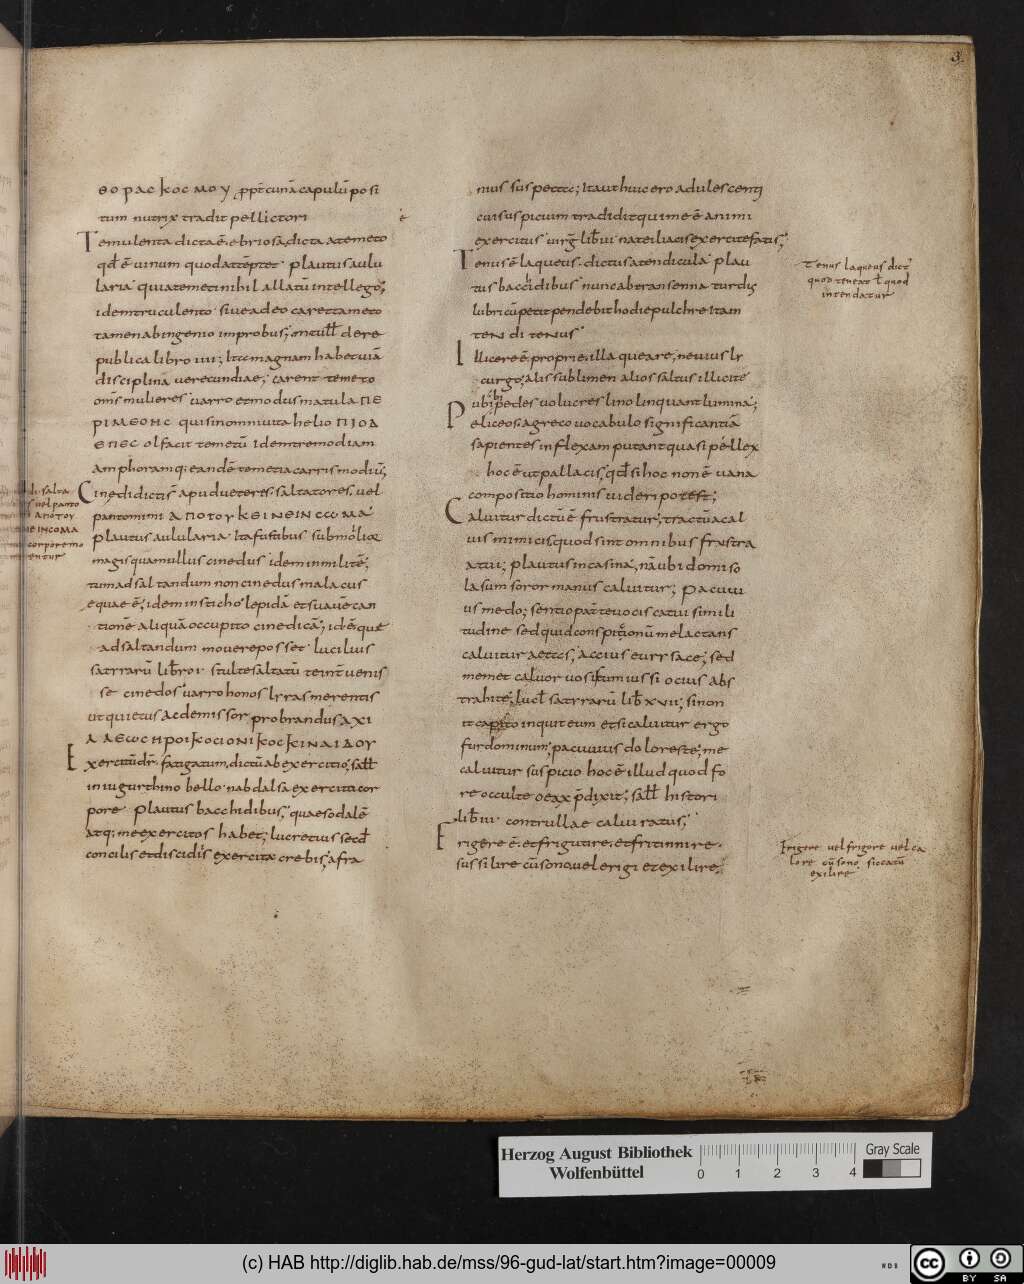 3
ΘΟΡΑC ΚΟCΜΟΥ ꝓpt̄ cunā capulū posi
tum nutrix tradit pellictori
Temulenta dicta ē. ebriosa, dicta a temeto
qđ ē uinum quod attēptet. plautus aulu
laria quia temeti nihil allatū intellego;
idem truculento siue adeo caret tameto
tamen ab ingenio improbus;
publica libro iiii; Ita magnam habet uiā
disciplina uerecundiae; carent temeto
om̄s mulieres uarro et modus matula ΠΕ
ΡΙΜΕΘΗC quis in omni uita helio
olfacit temetū Idem tremodiam
amphoramq; eandē temeti a carris modiū;
Cinedi dicti s̄ apud ueteres saltatores. uel
pantomimi ΑΠΟ ΤΟΥ ΚΕΙΝΕΙΝ CΩΜΑ
plautus aulularia Ita fustibus sum mollior
magis quam ullus cinedus idem in milite;
tum ad saltandum non cinedus malacus
equae ē; idem insticho lepidā et suauē can
tionē aliquā occupito cinedicā; id ē, que
ad saltandum mouere posset. lucilius
satrarū libro i. stulte saltatū te int̄ uenis
se cinedos uarro honos
ut quietus aedem issor probrandus
Exercitū dr̄. fatigatum, dictū ab exercitio; satł
in iugurthino bello nabdalsa exerciti cor
pore plautus bacchidibus; quae sodalē
atq; me exercitos habet; lucretius secđ
conciliis et discidiis exercita crebis; afra
nius suspecta; Ita ut huic ero adulescenti
cui suspicium tradidit qui me ē animi
exercitus uirḡ lib̄ vi nate iliacis exercite fatis;
Tenus ē laqueus. dictus a tendicula plau
tus bacchidibus nunc ab transenna turdus
lubricū petit pendebit hodie pulchre Itam
tendi tenus
Illicere ē proprie. illaqueare, neuius ly
curgo; alis sublimen alios saltus illicite
ubi bipedes uolucres lino linquant lumina;
Peliceos a greco uocabulo significantiā
sapientes inflexam putant quasi pellex
hoc ē ut pallacis; qđ si hoc non ē uana
compositio hominis uideri potest;
Caluitur dictū ē frustratur; tractū a cal
uis mimicis, quod sint omnibus frustra
atui; plautus in casina, nā ubi domi so
la sum sopor manus caluitur; pacuui
us medo; sentio pater te uocis catui simili
tudine sed quid conspicior num me lactans
caluitur aetas; accius eurysace; sed
memet caluor uos istum iussi ocius abs
trahite; lucł satrarū lib̄ xvii; si non
it capito inquit eum et si caluitur ergo
fur dominum; pacuuius doloreste; me
caluitur suspicio hoc ē illud quod fo
re occulte oeax p̄dixit; satł histori
lib̄ iii contrullae caluiratus;
Frigere ē. et frigutire. et fritinnire.
sussilire cū sono, uel erigi et exilire;
Tenus laqueus dict̄
quod teneat ł quod
intendatur
Frigere uel frigore uel ca
lore cū sono siccatū
exilire
Herzog August Bibliothek
Wolfenbüttel
0 1 2 3 4
Gray Scale
(c) HAB http://diglib.hab.de/mss/96-gud-lat/start.htm?image=00009
WDB
cc BY SA